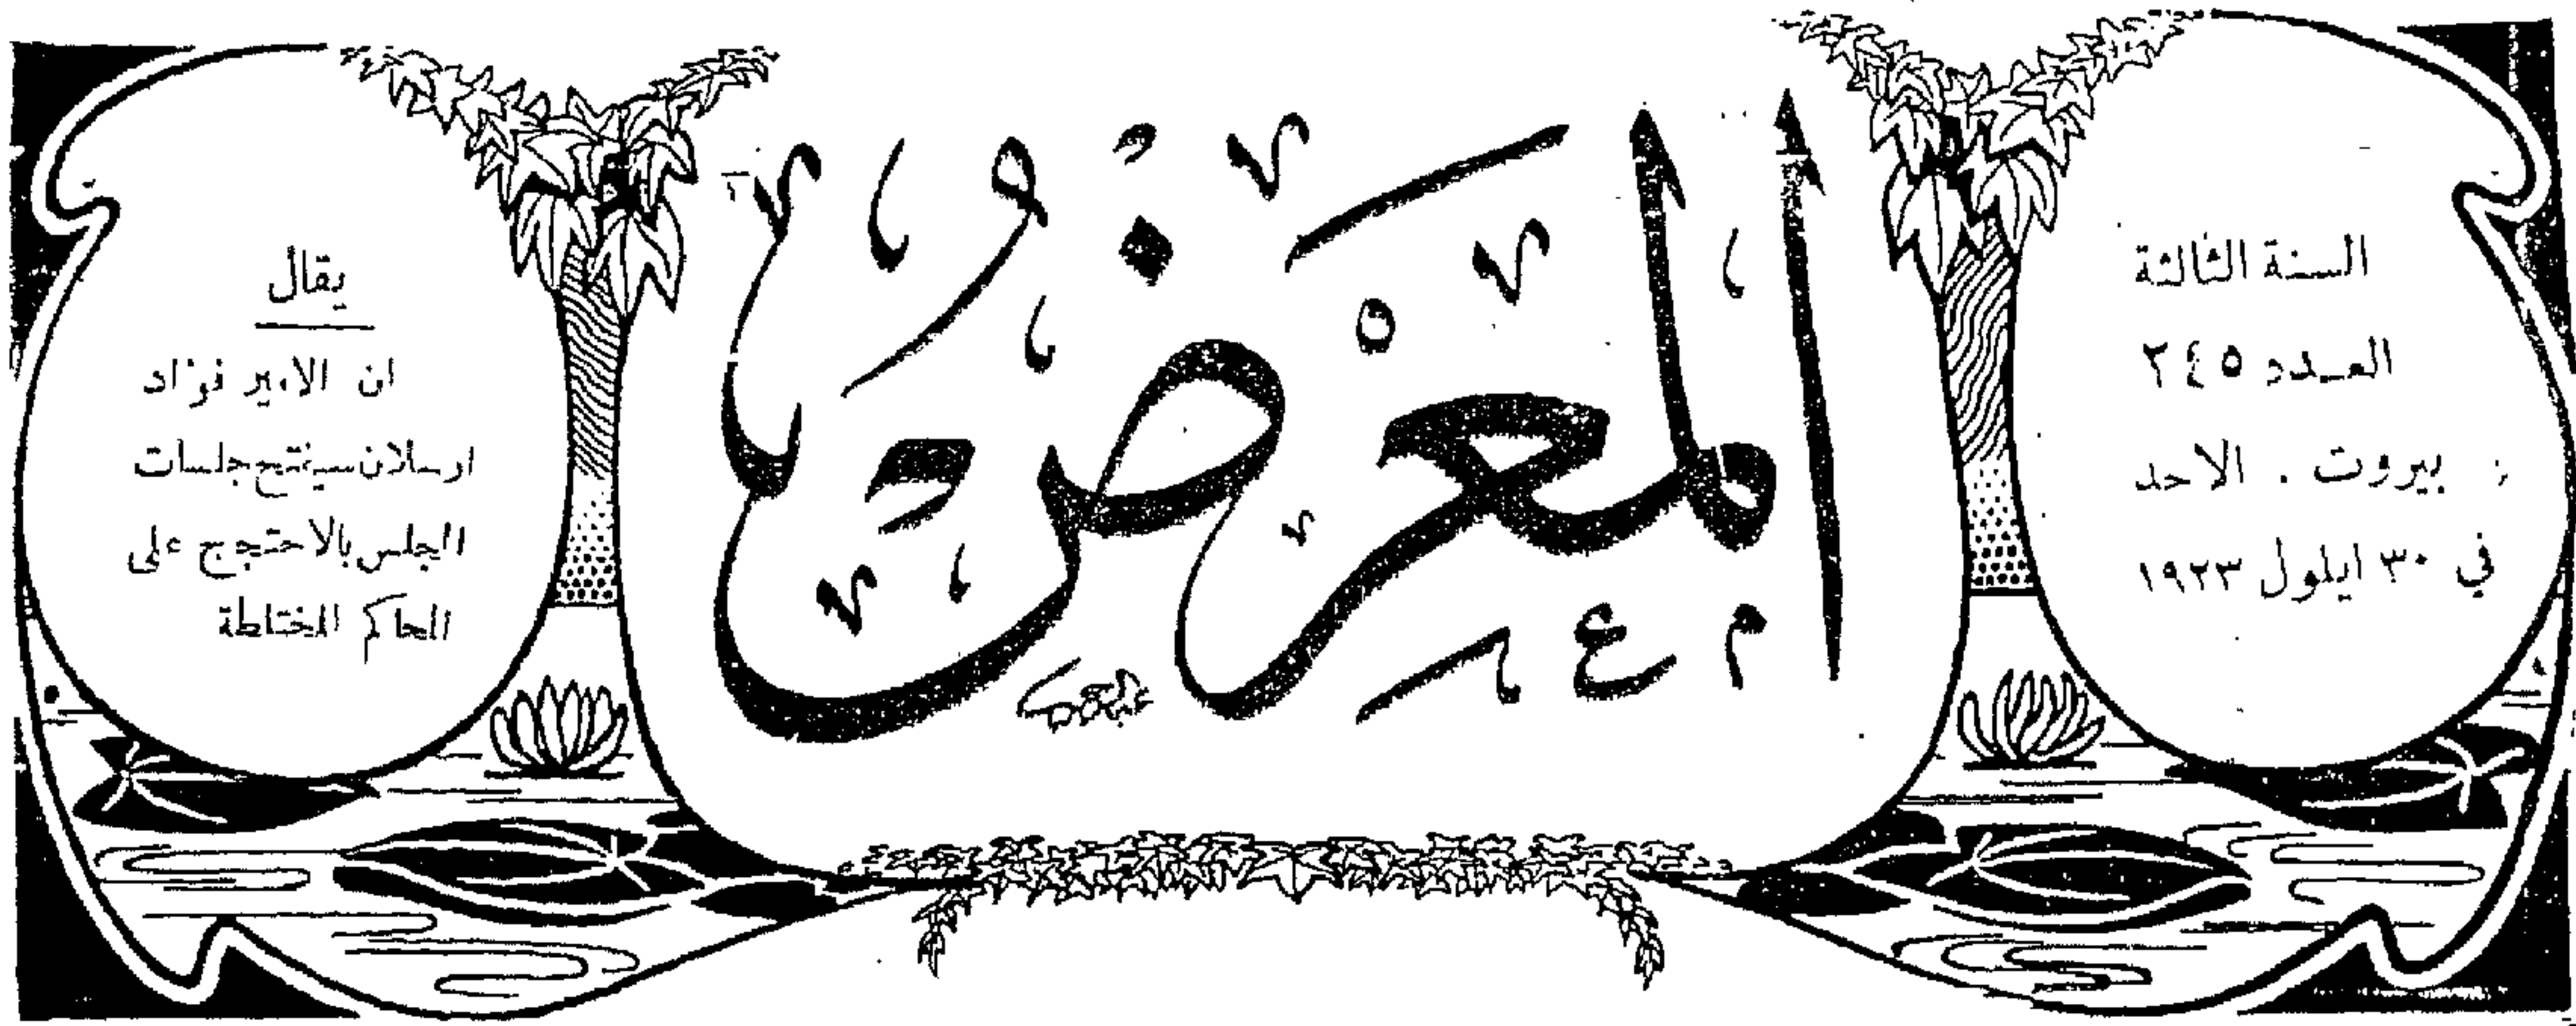 السنة الثالثة
العدد ٢٤٥
بيروت . الاحد
في ٣٠ ايلول ١٩٢٣
المعرض
يقال
ان الامير فؤاد
ارسلان سيفتتح جلسات
المجلس بالاحتجج على
المحاكم المختاطة